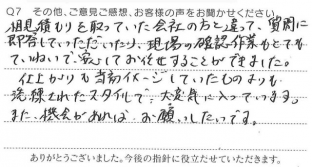 Q7 その他、ご意見ご感想、お客様の声をお聞かせください。
相見積もりを取っていた会社の方と違って、質問に
即答していただいたり、現場の確認作業もとても
ていねいで安心してお任せすることができました。
仕上がりも当初イメージしていたものよりも
洗練されたスタイルで、大変気に入っています。
また、機会があれば お願いしたいです。
ありがとうございました。今後の指針に役立だせていただきます。